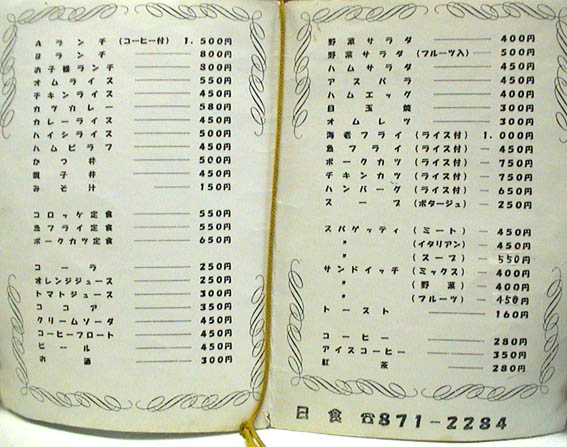 Aランチ (コーヒー付) 1,500円
Bランチ 800円
お子様ランチ 800円
オムライス 550円
チキンライス 450円
カツカレー 580円
カレーライス 450円
ハイシライス 500円
ハムピラフ 450円
かつ丼 500円
親子丼 450円
みそ汁 150円
コロッケ定食 550円
魚フライ定食 550円
ポークカツ定食 650円
コーラ 250円
オレンジジュース 250円
トマトジュース 300円
ココア 350円
クリームソーダ 450円
コーヒーフロート 450円
ビール 450円
お酒 300円
野菜サラダ 400円
野菜サラダ (フルーツ入) 500円
ハムサラダ 450円
アスパラ 450円
ハムエッグ 400円
目玉焼 300円
オムレツ 300円
海老フライ (ライス付) 1,000円
魚フライ (ライス付) 450円
ポークカツ (ライス付) 750円
チキンカツ (ライス付) 750円
ハンバーグ (ライス付) 650円
スープ (ポタージュ) 250円
スパゲッティ (ミート) 450円
〃 (イタリアン) 450円
〃 (スープ) 550円
サンドイッチ (ミックス) 400円
〃 (野菜) 400円
〃 (フルーツ) 450円
トースト 160円
コーヒー 280円
アイスコーヒー 350円
紅茶 280円
日食 ☎871-2284